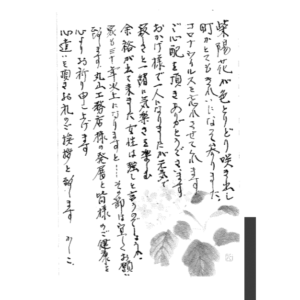 紫陽花が色とりどり咲き出し
町がとてもきれいになって参りました。
コロナウイルスを忘れさせてくれます。
ご心配を頂きありがとうございます。
おかげ様で一人になりましたが元気で
淋しさと一緒に気楽さを楽しむ
余裕が出て来ました。女性は強いと言うのでしょうか。
家も三十年以上になりますと…その節は宜しくお願い
致します。丸山工務店様の発展と皆様のご健康を
心よりお祈り申し上げます
心遣いを頂きお礼のご挨拶と致します かしこ